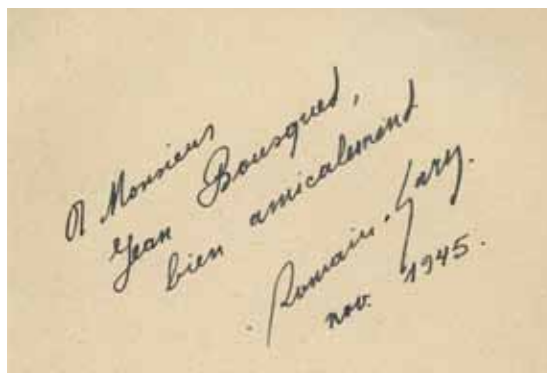 A Monsieur
Jean Bousquet,
bien amicalement
Romain Gary.
nov. 1945.